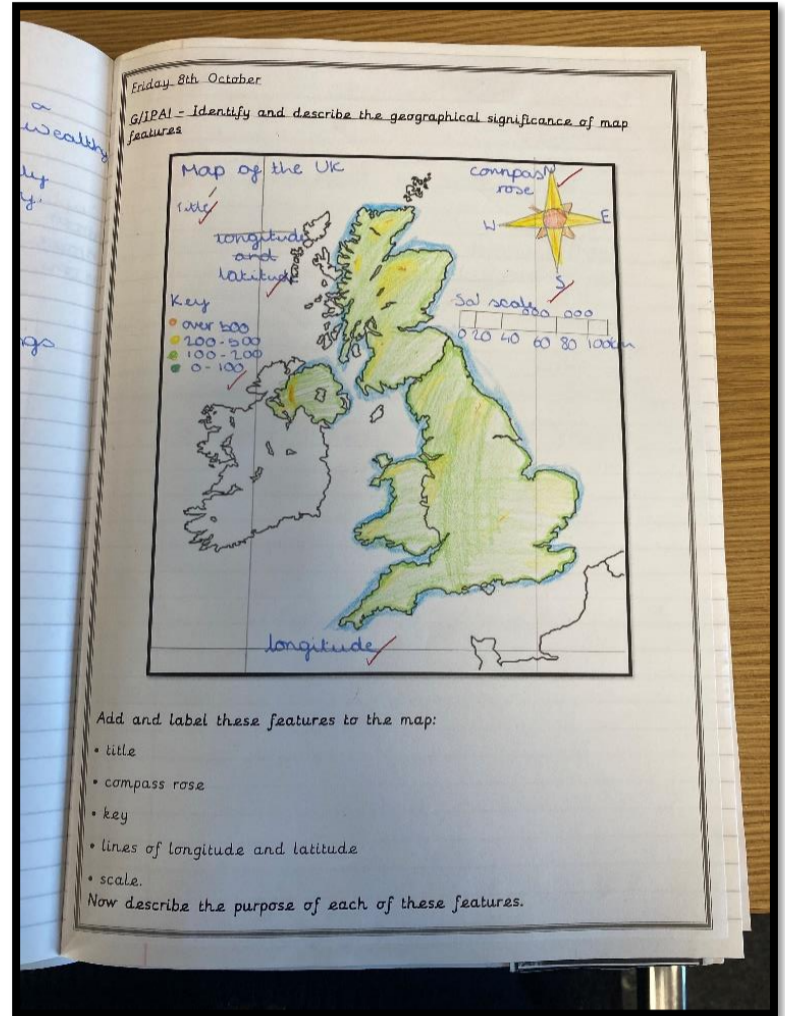 a
wealthy
Friday 8th October
G/IPA! - Identify and describe the geographical significance of map
features
Map of the UK
title
compass
rose
N
W
E
S
longitude
and
latitude
Key
over 500
200-500
100-200
0-100
scale
0 20 40 60 80 100km
longitude
Add and label these features to the map:
• title
• compass rose
• key
• lines of longitude and latitude
• scale.
Now describe the purpose of each of these features.